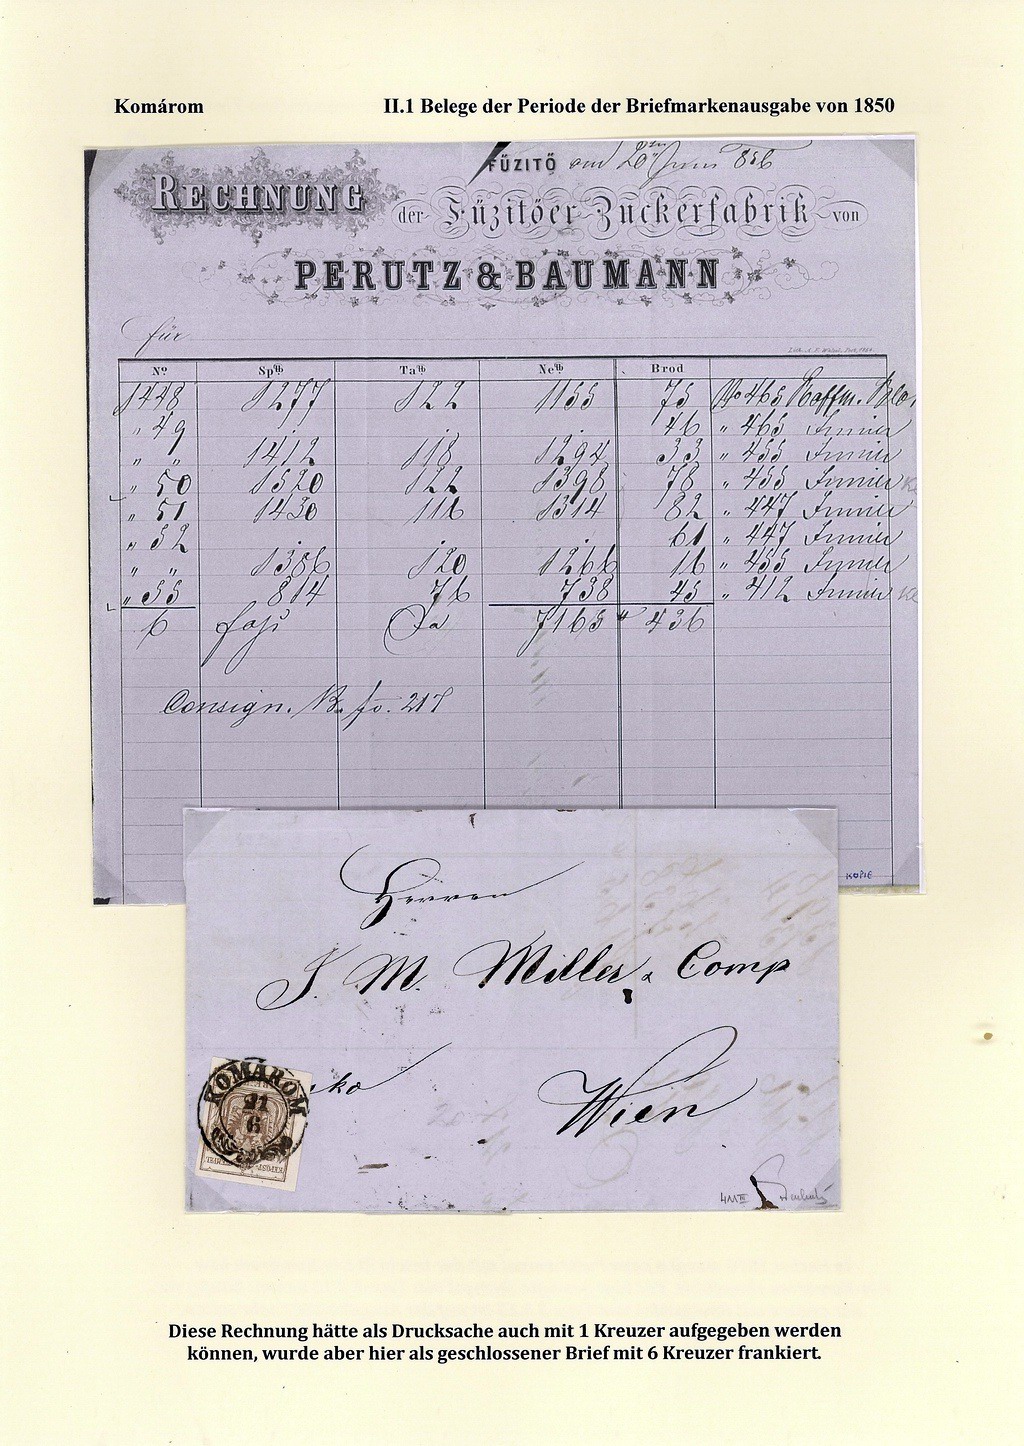 Komárom II.1 Belege der Periode der Briefmarkenausgabe von 1850
FÜZITÖ am 20ten Juni 856
RECHNUNG der Füzitöer Zuckerfabrik von
PERUTZ & BAUMANN
für
No Sp℔ Ta℔ Ne℔ Brod
1448 1277 122 1155 75 No 465 Raffin.
" 49 46 " 465
" " 1412 118 1294 33 " 455
" 50 1520 122 1398 78 " 455
" 51 1430 116 1314 82 " 447
" 52 61 " 447
" " 1386 120 1266 16 " 455
" 53 814 76 738 45 " 412
6 Fass 7165 436
Consign. B. fo. 217
KOPIE
Herren
J. M. Miller & Comp
Wien
KOMÁROM
21
6
Diese Rechnung hätte als Drucksache auch mit 1 Kreuzer aufgegeben werden
können, wurde aber hier als geschlossener Brief mit 6 Kreuzer frankiert.